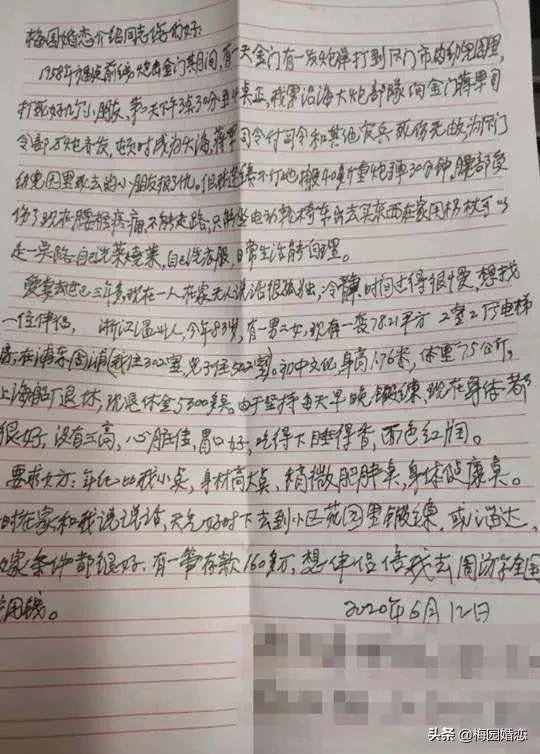 梅园婚恋介绍同志您们好:
1958年我在前线炮击金门其月间,有一天金门有一发炮弹打到厦门市的幼儿园里,
打死好几个小朋友,第二天下午3点30分
我军沿海大炮部队向金门蒋军司
令部万炮齐发,顿时成为火海,蒋军司令付司令和其他官兵死伤无数,为厦门
幼儿园里死去的小朋友报了仇。但我连续不打地搬40多斤重炮弹30分钟,腰部受
伤了现在腰推疼痛,不能走路,只能坐电动轮椅车出去买东西在家用拐杖可以
走一点路自己洗菜烧菜,自己洗衣服,日常生活能自理。
爱妻去世已三年多,现在一人在家无人说话很孤独,冷静时间过得很慢,想找
一位伴侣,浙江温州人,今年83岁,有一男二女,现有一套78.21平方2室2厅电梯
房,在浦东周浦(我住302室,儿子住502室)。初中文化,身高1.76米,体重75公斤,
上海船厂退休,现退休金5300多员。由于坚持每天早晚锻练,现在身体都
很好,没有三高,心脏佳,胃口好,吃得下睡得香,面色红润。
要求女方:年纪比我小点,身材高大点,稍微肥胖点,身体健康点。
时在家和我说说话,天气好时下去到小区花园里锻練,或溜达,
家条件都很好,有一笔存款160多万,想伴侣陪我去周游全国
用钱。
2020年6月12日
头条@梅园婚恋